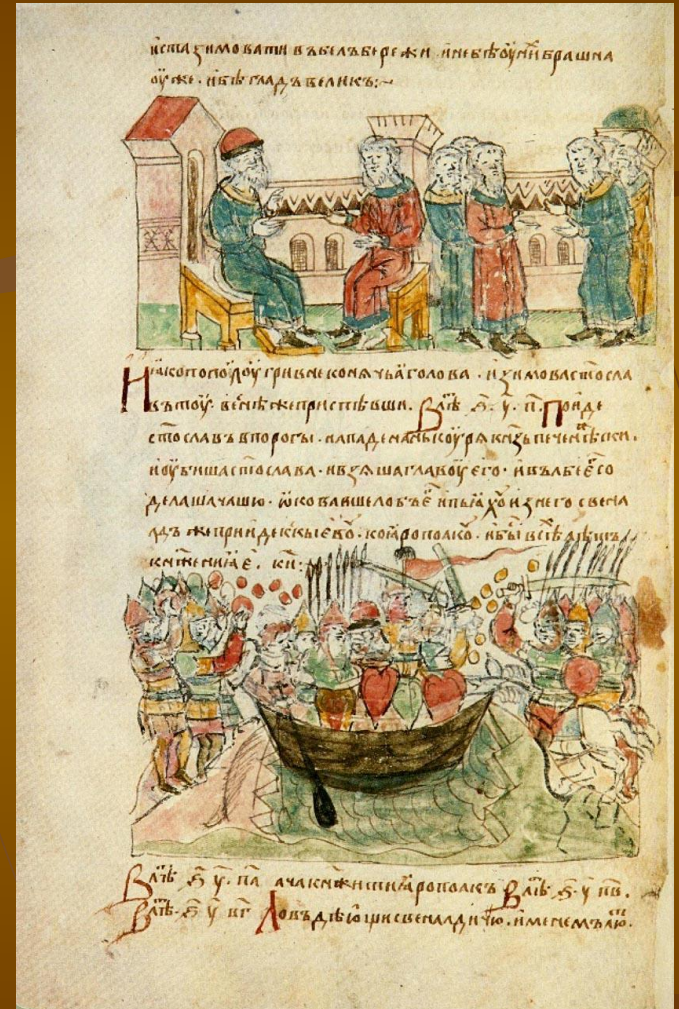 и ста зимовати въ бѣлъбережи . и не бѣ оу ни брашна
оуже . и бѣ гладъ великъ :~
Ико по по҇лоу гривне конячьꙗ голова . и зимова ст҃осла
въ тоу . весне же приспѣвши . В лѣ҇т ҂ѕ҃ . у҃ . п҃ . Поиде
ст҃ославъ в порогы . и нападе на нь коурѧ кнз҃ь печенѣскы .
и оубиша ст҃ослава . и взяша главоу его . и въ лбе е҇г со
делаша чашю . ѡковавше лобъ е҇г и пьꙗхо҇ из него свена
лдъ же прииде къ киевоу . ко ꙗрополкоу . и бы҇ всѣ лѣтъ
кнѧжениа е҇г . к҃и :
В лѣ҇т ҂ѕ҃ у҃ . п҃а а ча кнѧжити ꙗрополкъ В лѣ҇т . ҂ѕ҃ . у҃ п҃в .
В лѣ҇т . ҂ѕ҃ у҃ п҃г Ловъ дѣющи свеналдичю . именемъ лю҇т .